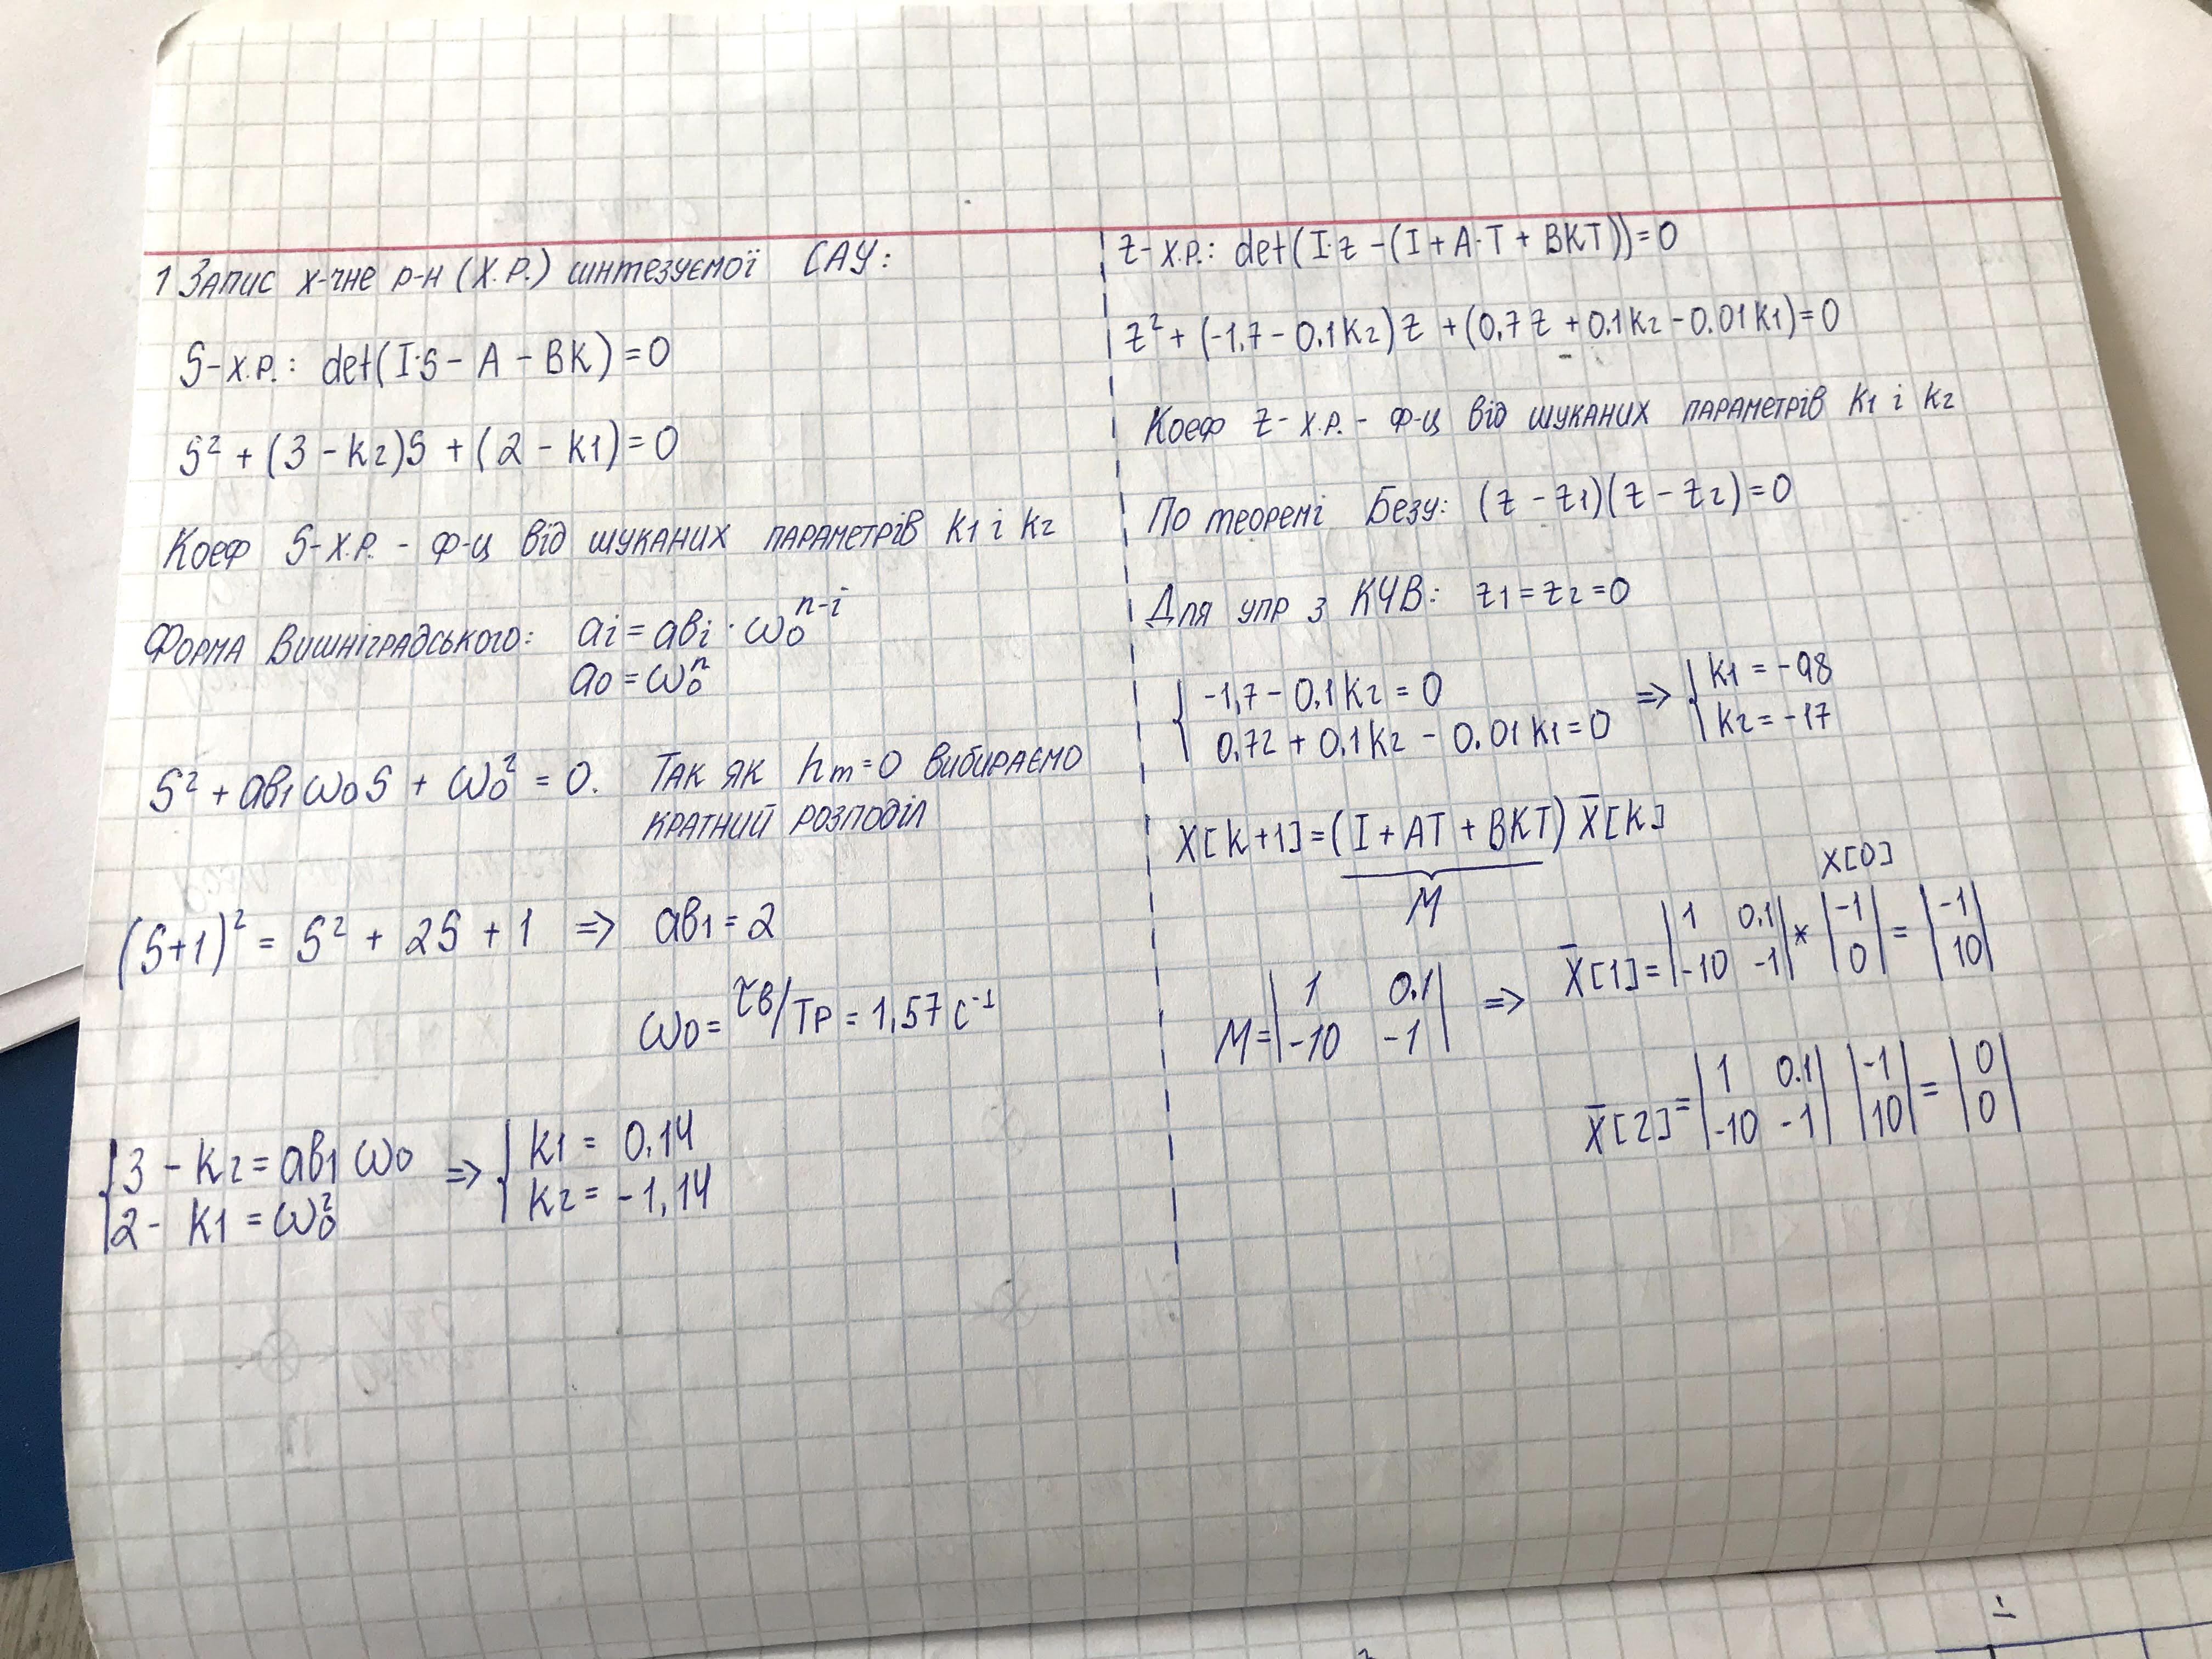 1 Запис х-чне р-н (Х.Р.) шнтезуємої САУ:
S-х.р.: det(I·S - A - BK) = 0
S² + (3 - k2)S + (2 - k1) = 0
Коеф S-х.р. - ф-ц від шуканих параметрів k1 і k2
Форма Вишніградського: ai = aвi · ω0^(n-i)
a0 = ω0^n
S² + aв1 ω0 S + ω0² = 0. Так як hm = 0 вибираємо
кратний розподіл
(S+1)² = S² + 2S + 1 => aв1 = 2
ω0 = τв/Тр = 1,57 c⁻¹
{3 - k2 = aв1 ω0 => {k1 = 0,14
{2 - k1 = ω0² {k2 = -1,14
z-х.р.: det(I·z - (I + A·T + BKT)) = 0
z² + (-1,7 - 0,1k2)z + (0,7z + 0.1k2 - 0.01k1) = 0
Коеф z-х.р. - ф-ц від шуканих параметрів k1 і k2
По теоремі Безу: (z - z1)(z - z2) = 0
Для упр з КЧВ: z1 = z2 = 0
{-1,7 - 0,1k2 = 0 => {k1 = -98
{0,72 + 0,1k2 - 0.01k1 = 0 {k2 = -17
X[k+1] = (I + AT + BKT) X̄[k]
M
X[0]
M = |1 0.1| => X̄[1] = |1 0.1| * |-1| = |-1|
|-10 -1| |-10 -1| |0| |10|
X̄[2] = |1 0.1| |-1| = |0|
|-10 -1| |10| |0|